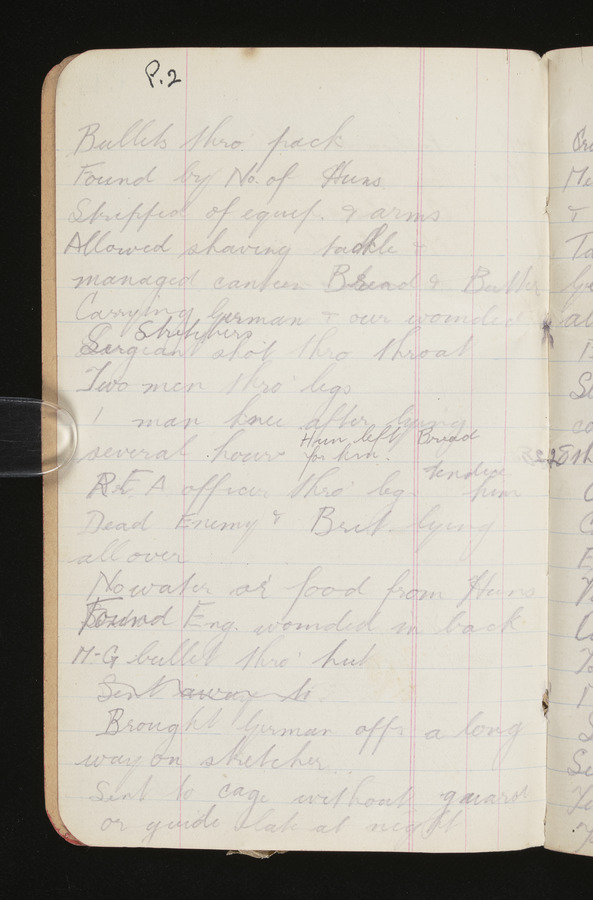 P.2
Bullets thro pack
Found by No. of Huns
Stripped of equip. & arms
Allowed shaving tackle &
managed canteen Bread & Butter
Carrying German & our wounded
Stretchers
Sergeant shot thro throat
Two men thro legs
1 man knee after lying
several hours Hun left Bread for him.
R.F.A officer thro' leg. him
Dead Enemy & Brit. lying
all over
No water or food from Huns
Found Eng. wounded in back
M-G bullet thro' hut
Sent away to
Brought German offr a long
way on stretcher
Sent to cage without guard
or guide late at night